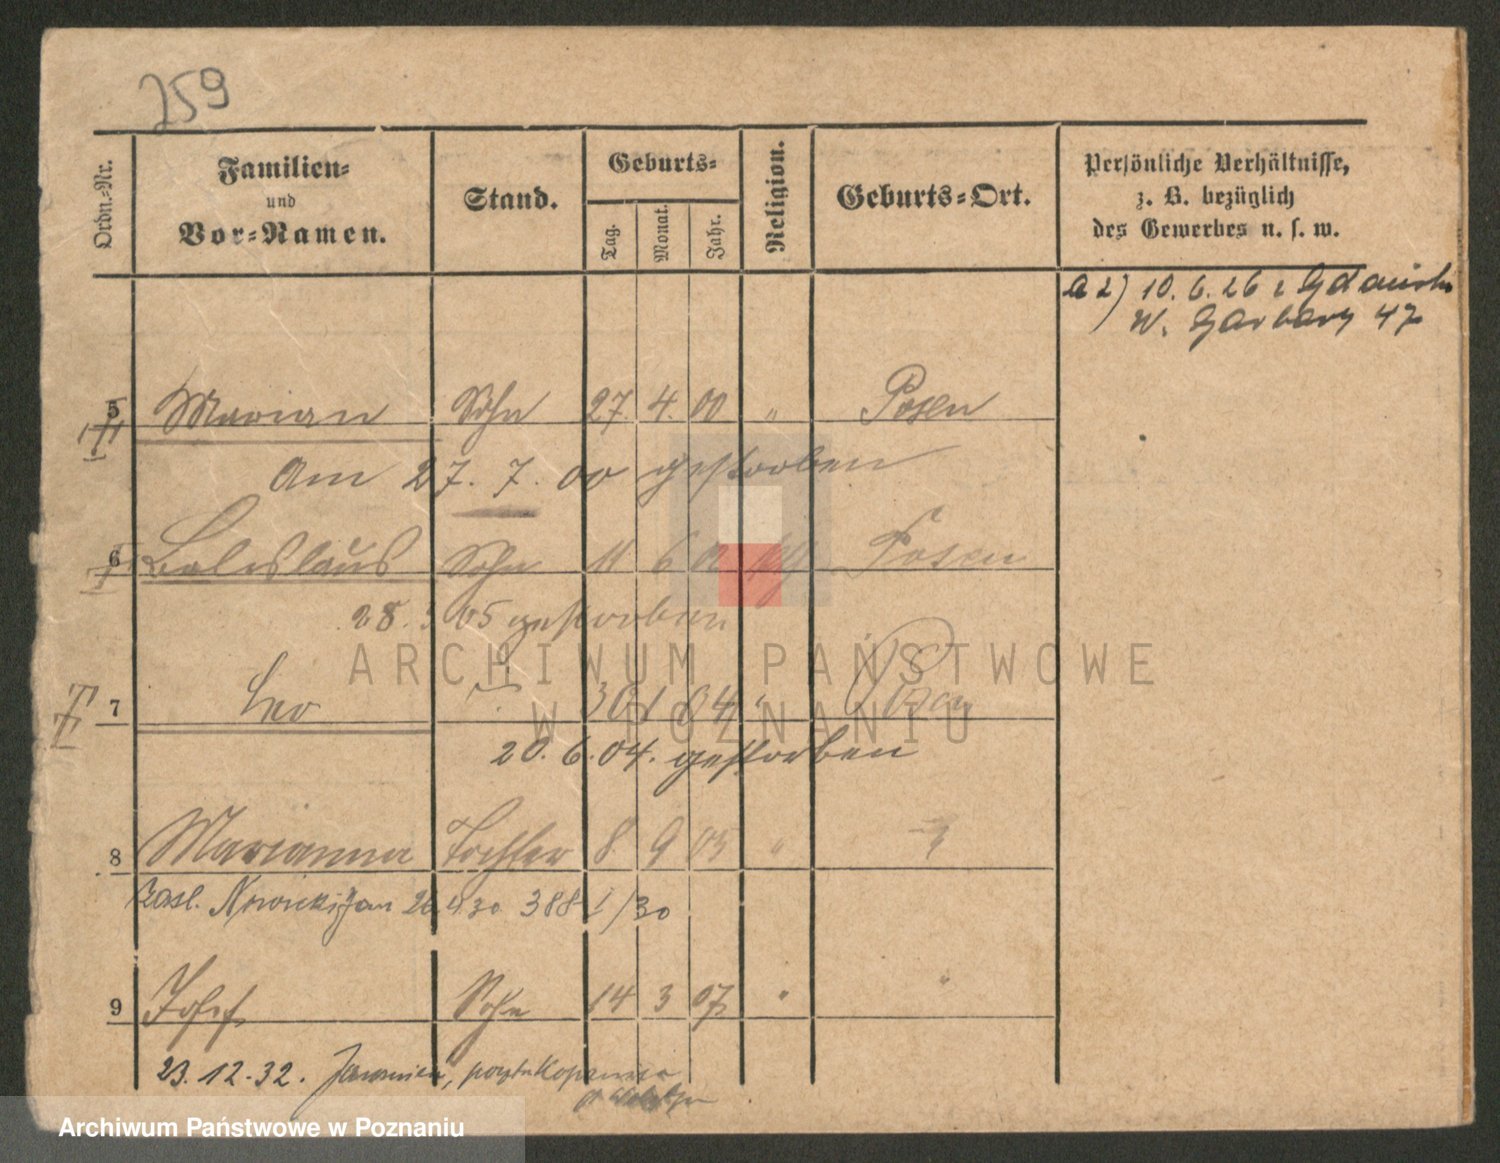 259
Ordn.-Nr.
Familien-
und
Vor-Namen.
Stand.
Geburts-
Tag.
Monat.
Jahr.
Religion.
Geburts-Ort.
Persönliche Verhältnisse,
z. B. bezüglich
des Gewerbes u. s. w.
a 2) 10. 6. 26 z
W. Garbary 47
5 Marian Sohn 27. 4. 00 " Posen
am 27. 7. 00 gestorben
6 Boleslaus Sohn 11 6 Posen
28. 05 gestorben
7 Leo 30 1 04 " Posen
20. 6. 04. gestorben
8 Marianna Tochter 8 9 05 "
zasl. Nowicki Jan 26 4 30 388 I/30
9 Josef Sohn 14 3 07 " "
23. 12. 32.
ARCHIWUM PAŃSTWOWE
W POZNANIU
Archiwum Państwowe w Poznaniu